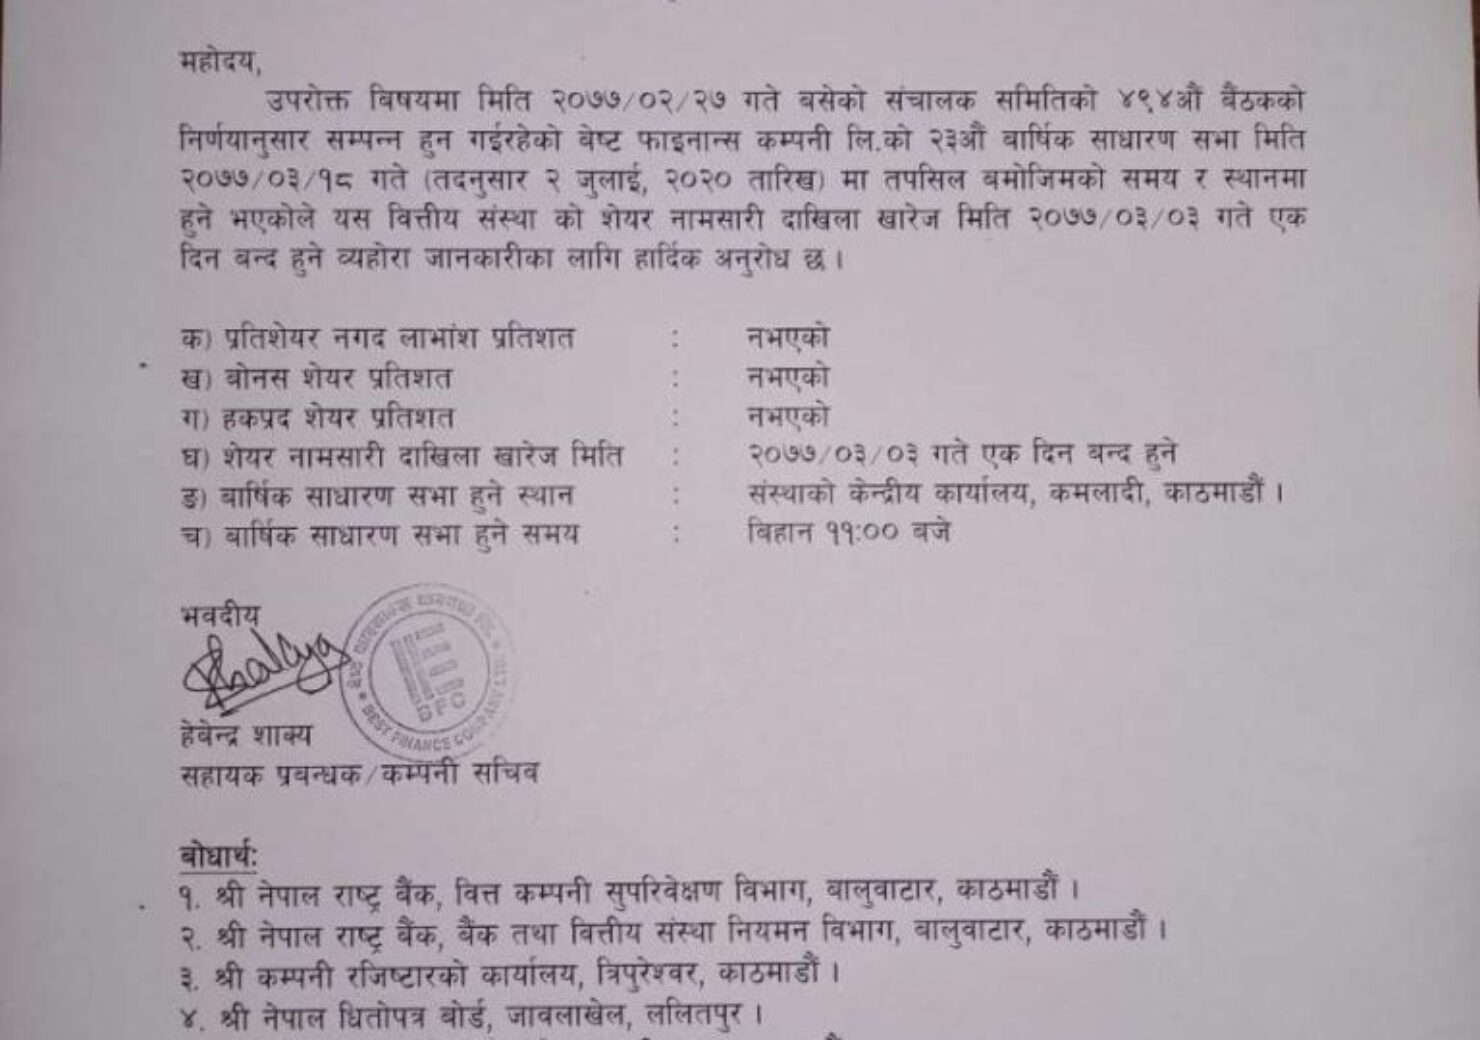 महोदय,
उपरोक्त बिषयमा मिति २०७७/०२/२७ गते बसेको संचालक समितिको ४९४औं बैठकको
निर्णयानुसार सम्पन्न हुन गईरहेको बेष्ट फाइनान्स कम्पनी लि.को २३औं बार्षिक साधारण सभा मिति
२०७७/०३/१८ गते (तदनुसार २ जुलाई, २०२० तारिख) मा तपसिल बमोजिमको समय र स्थानमा
हुने भएकोले यस वित्तीय संस्था को शेयर नामसारी दाखिला खारेज मिति २०७७/०३/०३ गते एक
दिन बन्द हुने व्यहोरा जानकारीका लागि हार्दिक अनुरोध छ ।
क) प्रतिशेयर नगद लाभांश प्रतिशत : नभएको
ख) बोनस शेयर प्रतिशत : नभएको
ग) हकप्रद शेयर प्रतिशत : नभएको
घ) शेयर नामसारी दाखिला खारेज मिति : २०७७/०३/०३ गते एक दिन बन्द हुने
ङ) बार्षिक साधारण सभा हुने स्थान : संस्थाको केन्द्रीय कार्यालय, कमलादी, काठमाडौं ।
च) बार्षिक साधारण सभा हुने समय : बिहान ११:०० बजे
भवदीय
BFC
BEST FINANCE COMPANY
हेबेन्द्र शाक्य
सहायक प्रबन्धक/कम्पनी सचिव
बोधार्थ:
१. श्री नेपाल राष्ट्र बैंक, वित्त कम्पनी सुपरिवेक्षण विभाग, बालुवाटार, काठमाडौं ।
२. श्री नेपाल राष्ट्र बैंक, बैंक तथा वित्तीय संस्था नियमन विभाग, बालुवाटार, काठमाडौं ।
३. श्री कम्पनी रजिष्टारको कार्यालय, त्रिपुरेश्वर, काठमाडौं ।
४. श्री नेपाल धितोपत्र बोर्ड, जावलाखेल, ललितपुर ।